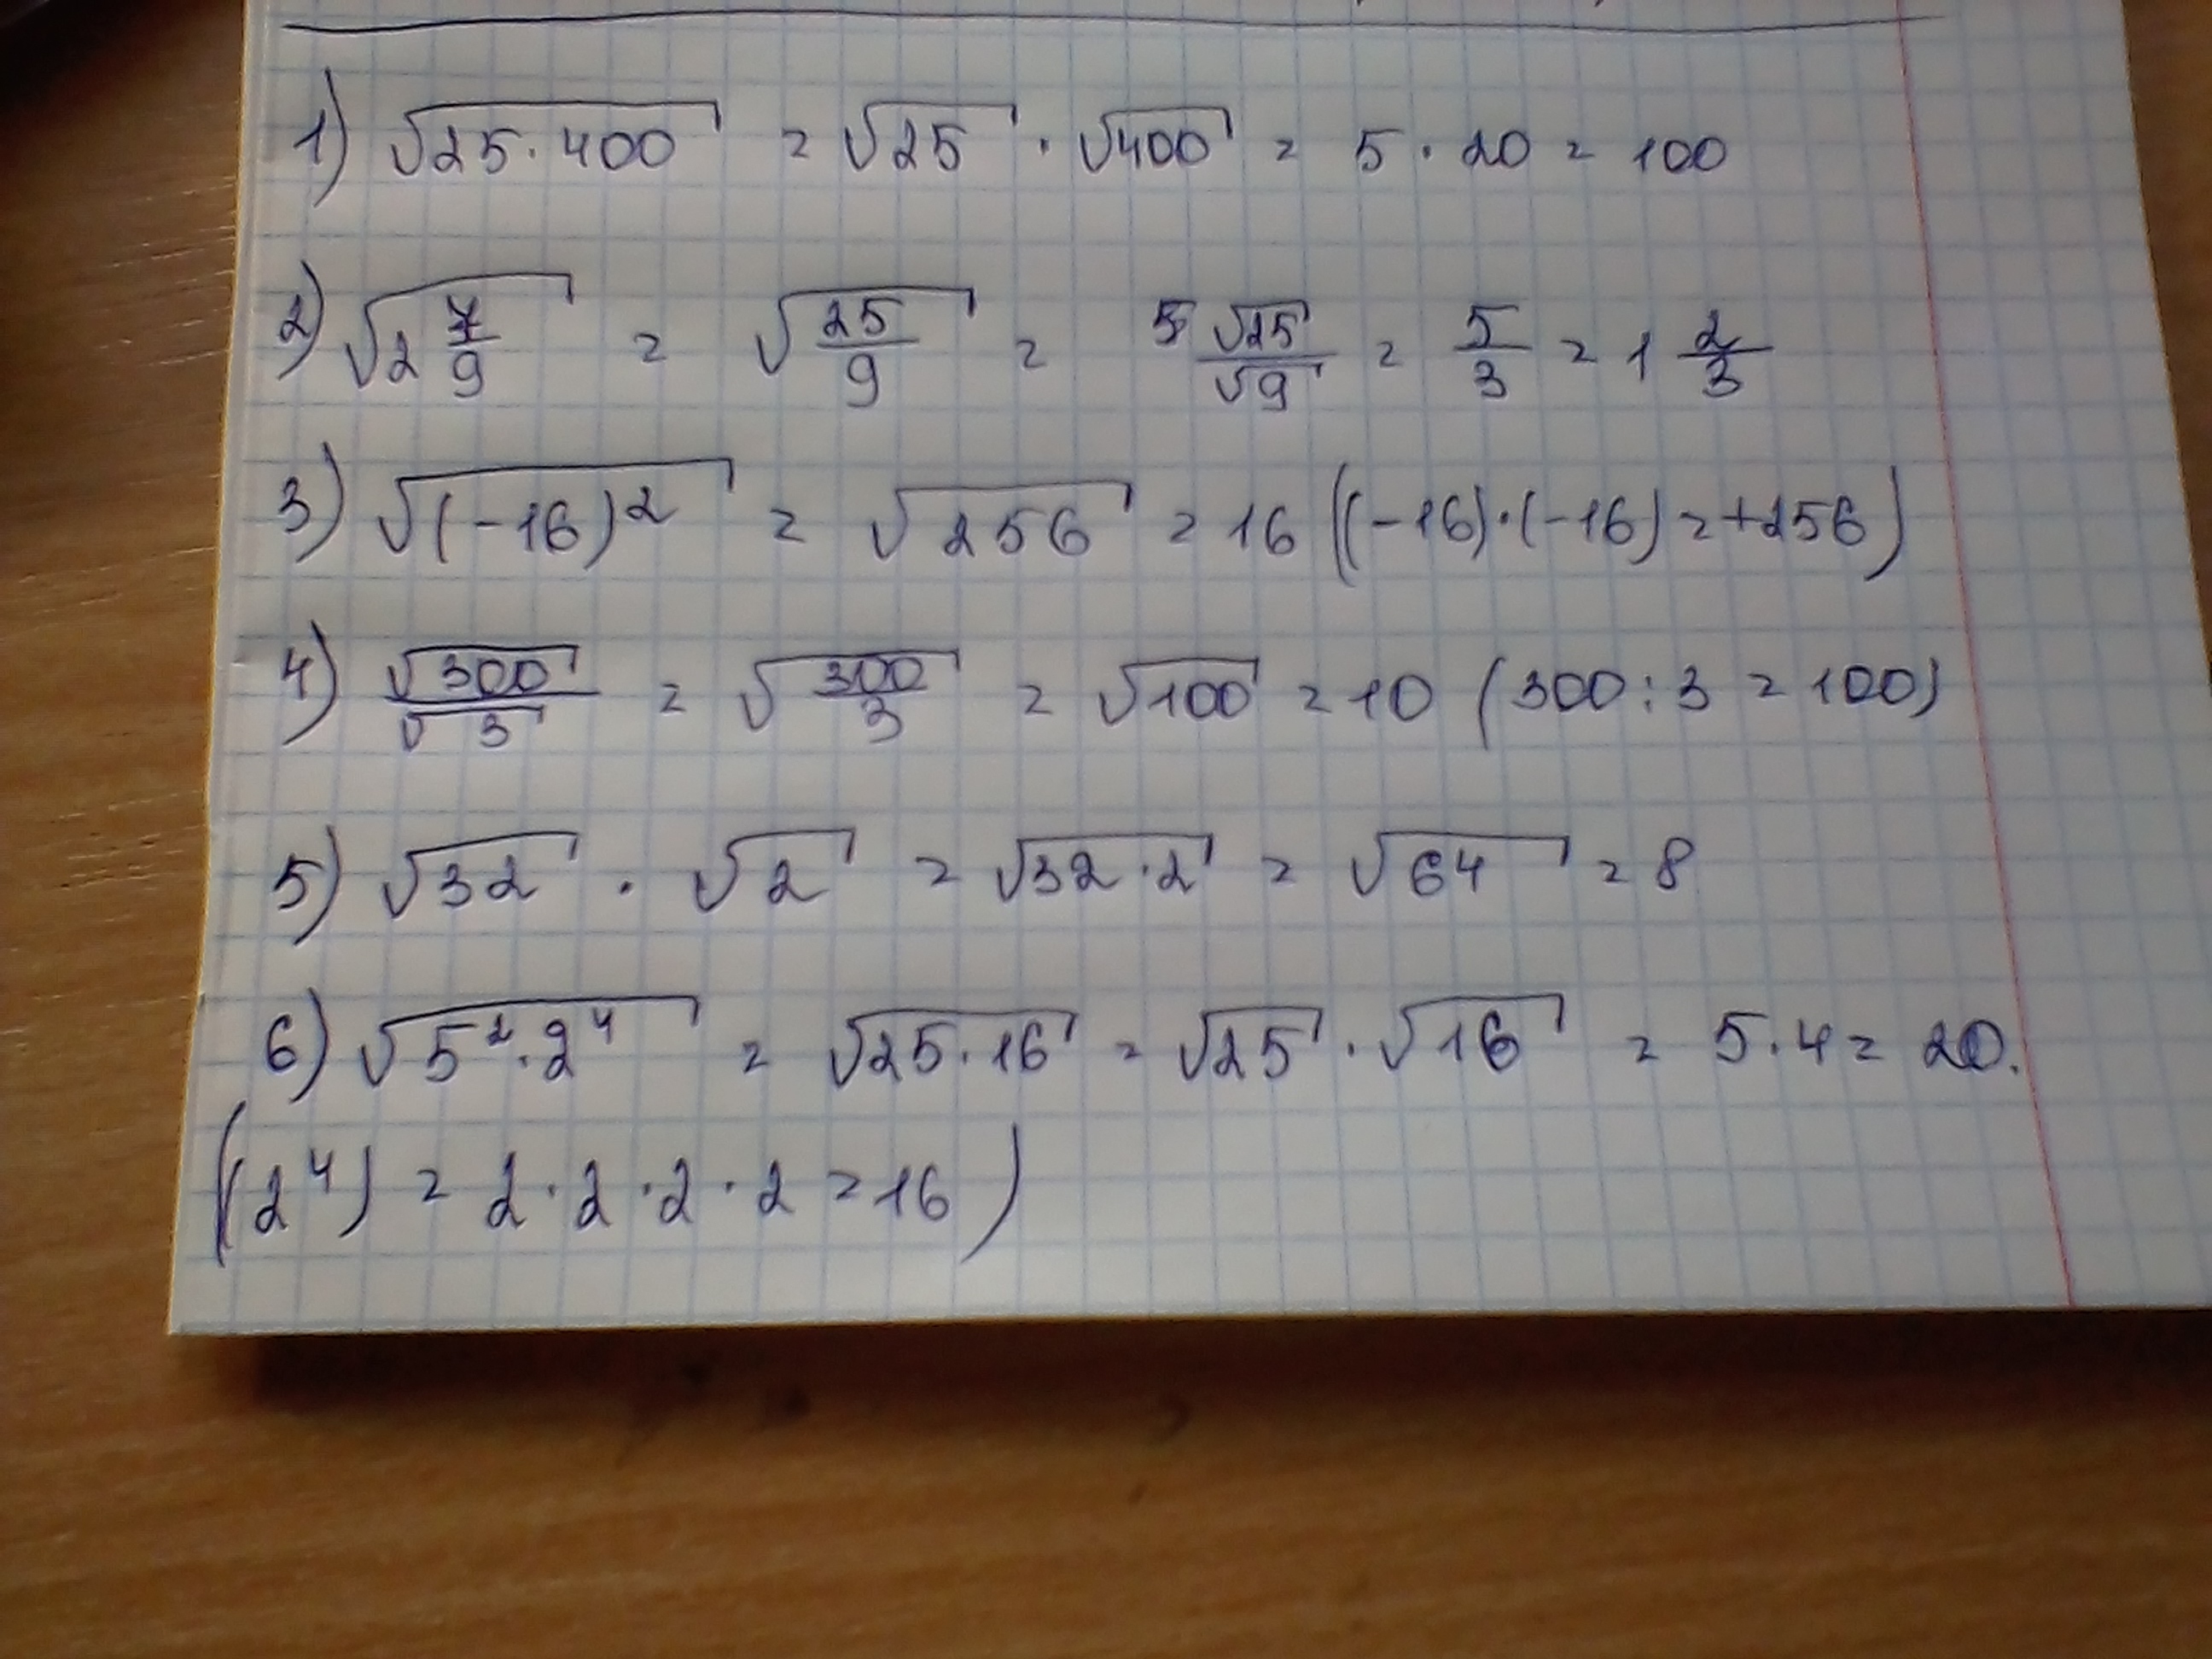 1) √25·400 = √25 · √400 = 5 · 20 = 100
2) √2 7/9 = √25/9 = 5 √25/√9 = 5/3 = 1 2/3
3) √(-16)² = √256 = 16 ((-16)·(-16) = +256)
4) √300/√3 = √300/3 = √100 = 10 (300 : 3 = 100)
5) √32 · √2 = √32·2 = √64 = 8
6) √5²·2⁴ = √25·16 = √25 · √16 = 5·4 = 20.
((2⁴) = 2·2·2·2 = 16)